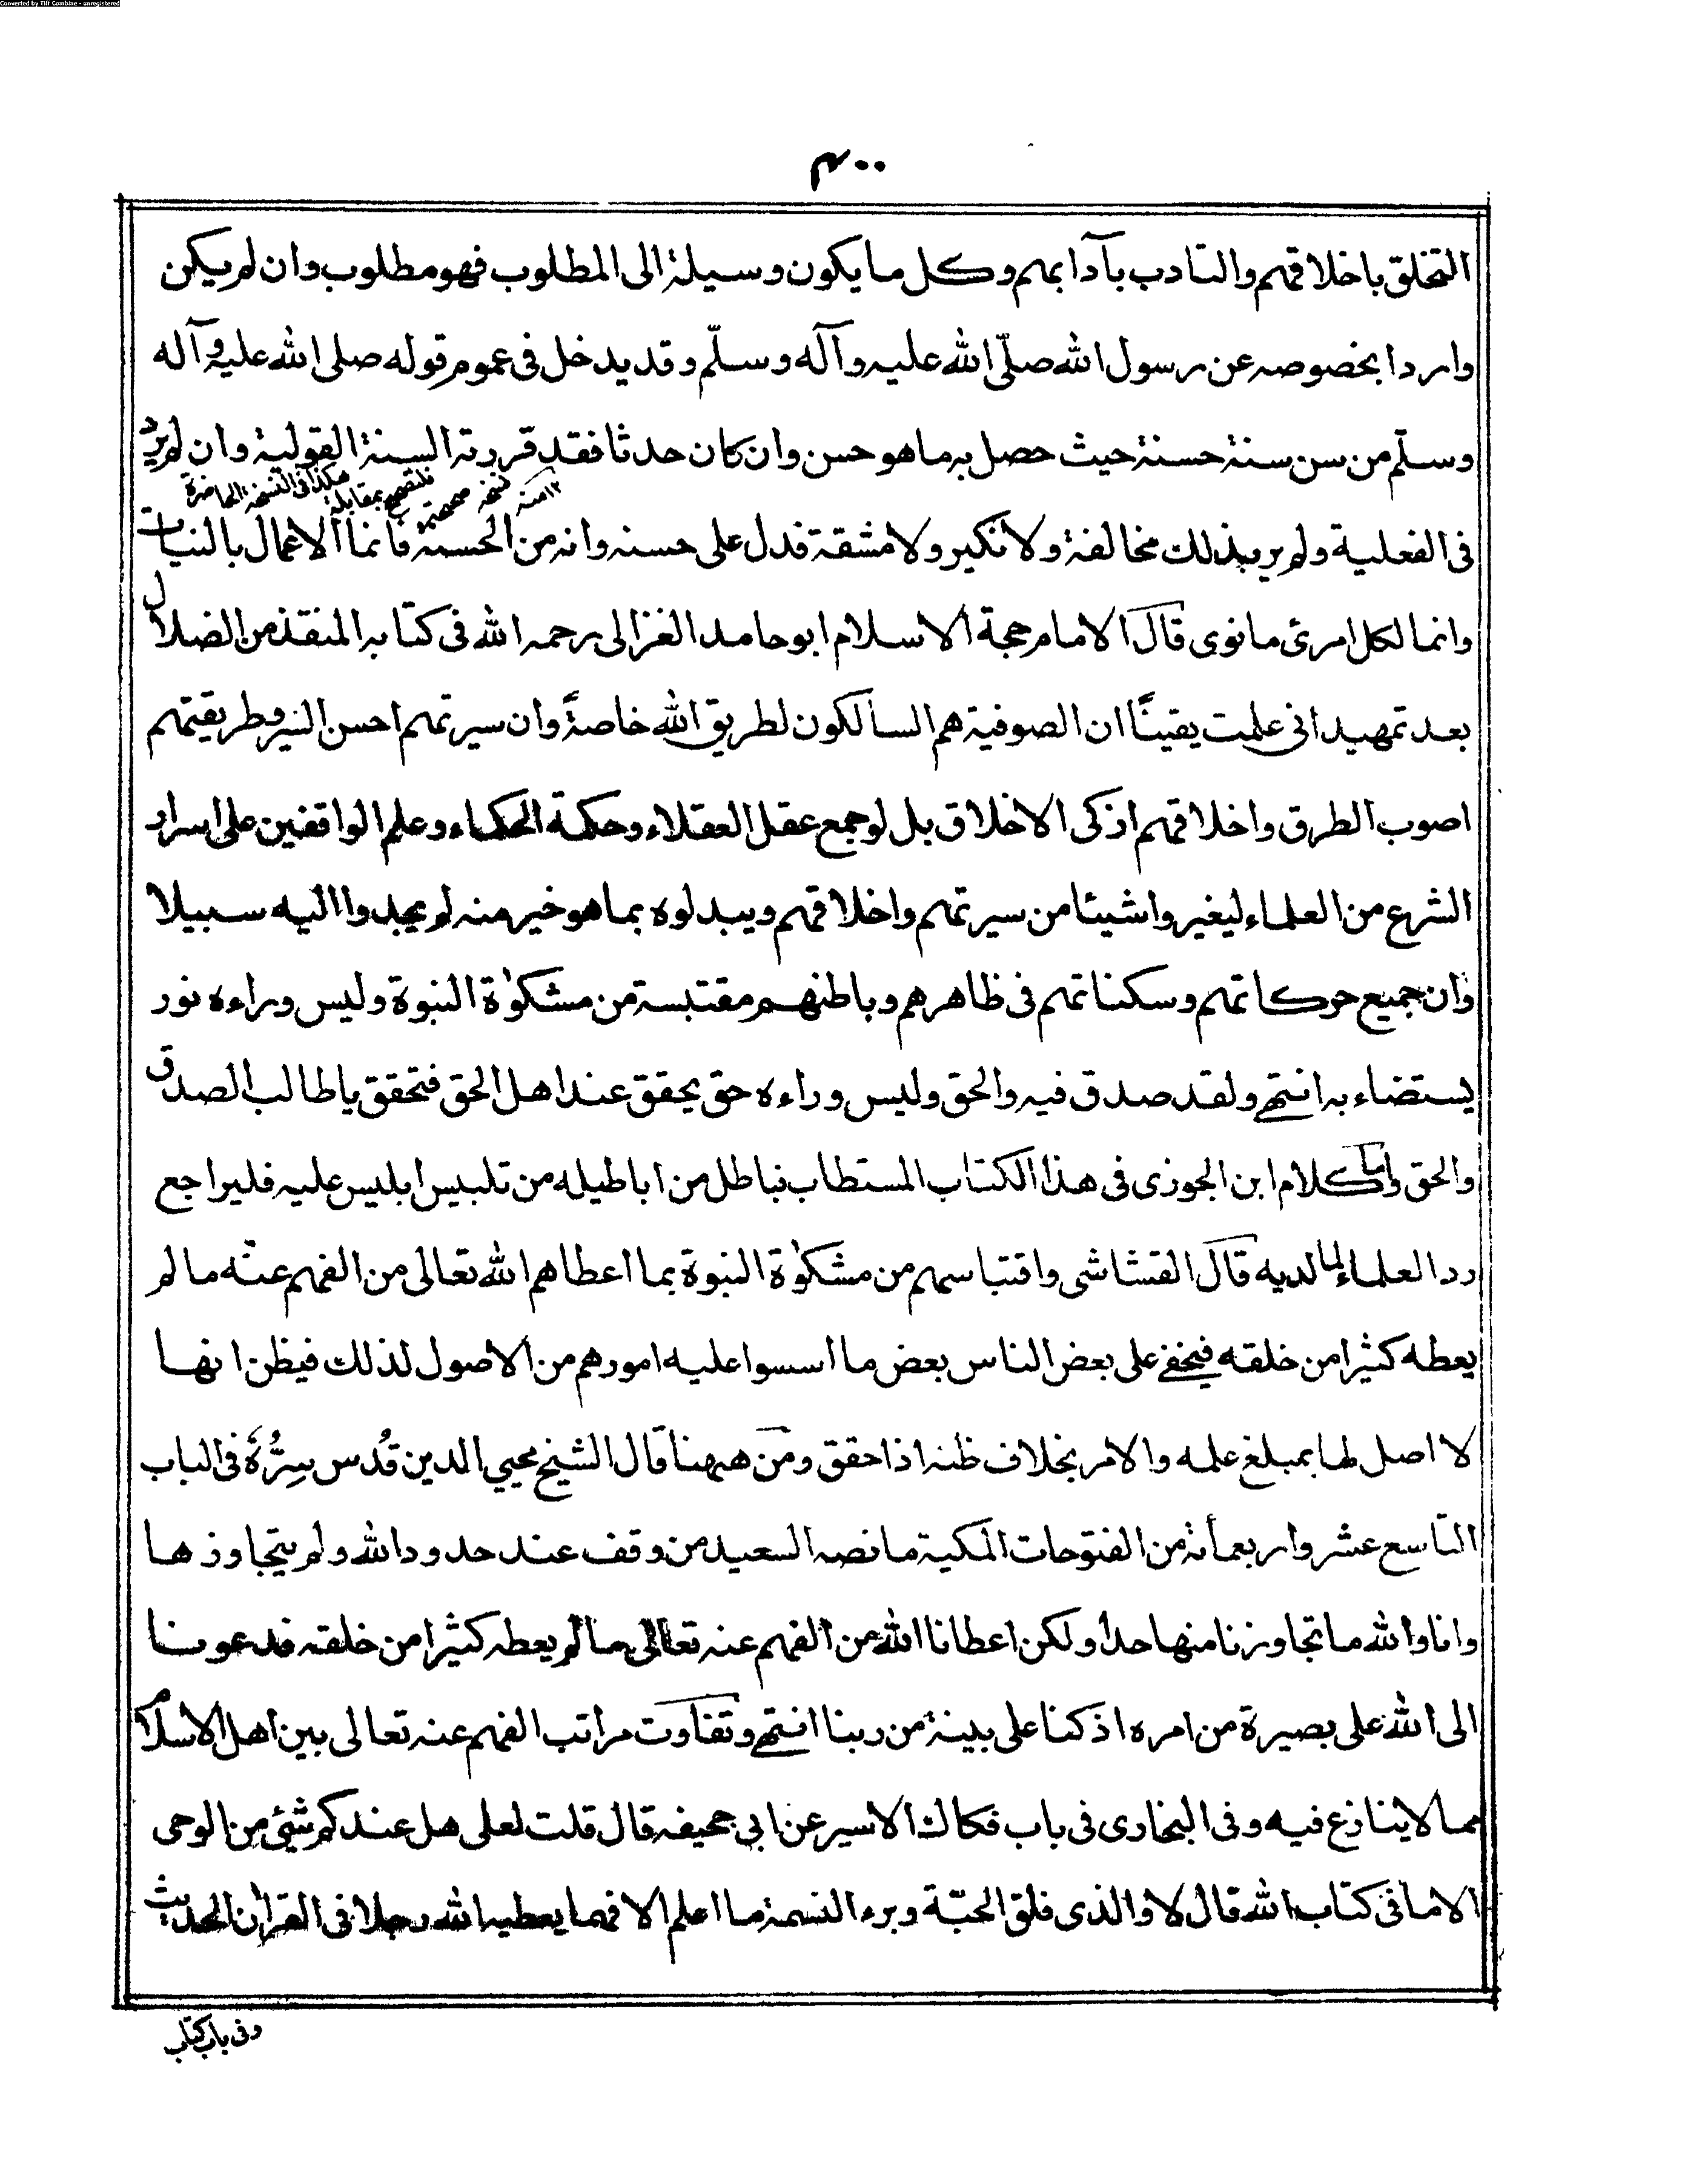 Converted by Tiff Combine - unregistered
٤٠٠
التخلق باخلاقهم والتادب بآدابهم وكل ما يكون وسيلة الى المطلوب فهو مطلوب وان لم يكن
واردا بخصوصه عن رسول الله صلّى الله عليه وآله وسلّم وقد يدخل فى عموم قوله صلى الله عليه وآله
وسلّم من سن سنة حسنة حيث حصل به ما هو حسن وان كان حدثا فقد قررته السنة القولية وان لم يرد
هكذا فى النسخة الحاضرة فلتصحح بمقابلة نسخة صحيحة ١٢ منه
فى الفعلية ولم يرد بذلك مخالفة ولا نكير ولا مشقة فدل على حسنه وانه من الحسنة فانما الاعمال بالنيات
وانما لكل امرئ ما نوى قال الامام حجة الاسلام ابو حامد الغزالى رحمه الله فى كتابه المنقذ من الضلال
بعد تمهيد انى علمت يقينًا ان الصوفية هم السالكون لطريق الله خاصةً وان سيرتهم احسن السير وطريقتهم
اصوب الطرق واخلاقهم اذكى الاخلاق بل لو جمع عقل العقلاء وحكمة الحكماء وعلم الواقفين على اسرار
الشرع من العلماء ليغيروا شيئا من سيرتهم واخلاقهم ويبدلوه بما هو خير منه لم يجدوا اليه سبيلا
وان جميع حركاتهم وسكناتهم فى ظاهرهم وباطنهم مقتبسة من مشكوٰة النبوة وليس وراءه نور
يستضاء به انتهى ولقد صدق فيه والحق وليس وراءه حق يحقق عند اهل الحق فتحقق يا طالب الصدق
والحق واما كلام ابن الجوزى فى هذا الكتاب المستطاب نباطل من اباطيله من تلبيس ابليس عليه فليراجع
رد العلماء لما لديه قال القشاشى واقتباسهم من مشكوٰة النبوة بما اعطاهم الله تعالى من الفهم عنه ما لم
يعطه كثيرا من خلقه فيخفى على بعض الناس بعض ما اسسوا عليه امورهم من الاصول لذلك فيظن انها
لا اصل لها بمبلغ علمه والامر بخلاف ظنه اذا حقق ومن ههنا قال الشيخ محيي الدين قُدس سِرُّهُ فى الباب
التاسع عشر واربعمأة من الفتوحات المكية ما نصه السعيد من وقف عند حدود الله ولم يتجاوزها
وانا والله ما تجاوزنا منها حدا ولكن اعطانا الله من الفهم عنه تعالى ما لم يعطه كثيرا من خلقه فدعونا
الى الله على بصيرة من امره اذ كنا على بينة من ربنا انتهى وتفاوت مراتب الفهم عنه تعالى بين اهل الاسلام
مما لا ينازع فيه وفى البخارى فى باب فكاك الاسير عن ابي جحيفه قال قلت لعلى هل عندكم شئ من الوحى
الا ما فى كتاب الله قال لا والذى فلق الحبّة وبرء النسمة ما اعلم الا فهما يعطيه الله رجلا فى القرآن الحديث
وفى باب كتاب